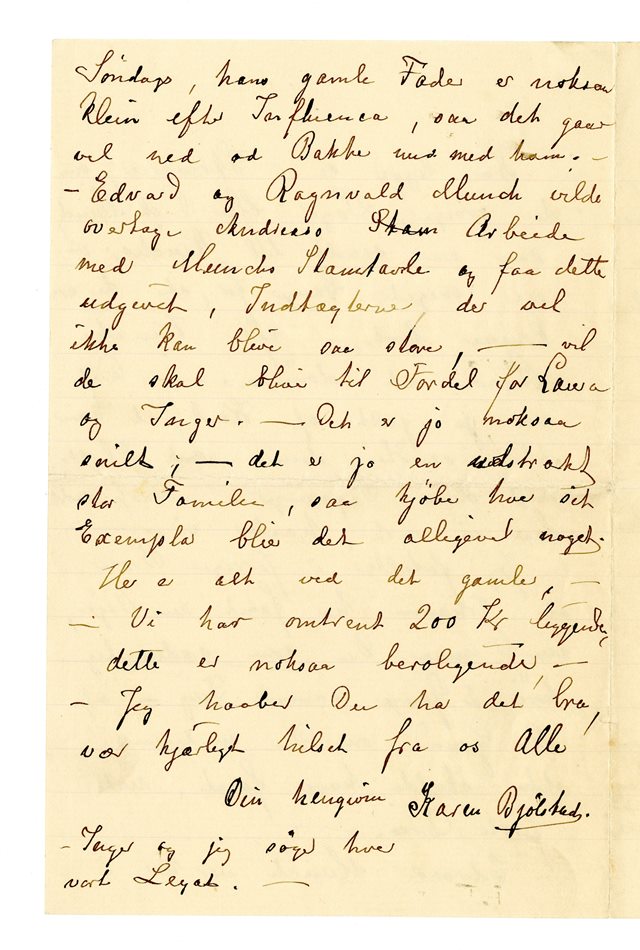 Søndags, hans gamle Fader er noksaa
klein efter Influenca, saa det gaar
vel ned od Bakke nu med ham. —
— Edvard og Ragnvald Munch vilde
overtage Andreass Stam Arbeide
med Munchs Stamtavle og faa dette
udgivet, Indtægterne, der vel
ikke kan blive saa store, — vil
de skal blive til Fordel for Laura
og Inger. — Det er jo noksaa
snilt; — det er jo en udstrakt
stor Familie, saa kjøber hver sit
Exemplar blir det alligevel noget.
Her er alt ved det gamle, —
— Vi har omtrent 200 Kr liggende,
dette er noksaa beroligende, —
— Jeg haaber Du har det bra,
vær kjærligt hilset fra os Alle
Din hengivne Karen Bjølstad.
— Inger og jeg søger hver
vort Legat. —